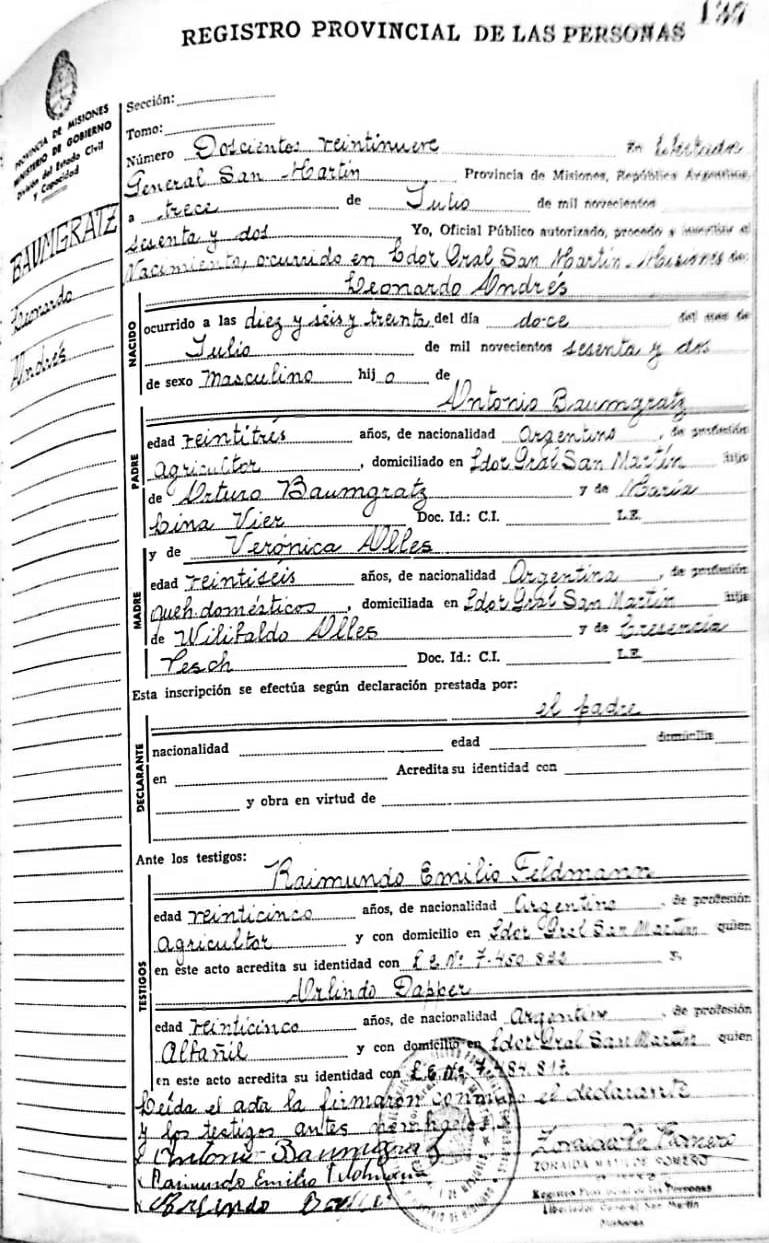 REGISTRO PROVINCIAL DE LAS PERSONAS
PROVINCIA DE MISIONES
MINISTERIO DE GOBIERNO
División del Estado Civil
y Capacidad
BAUMGRATZ
Leonardo
Andrés
Sección:
Tomo:
Número Doscientos veintinueve En Libertador
General San Martín Provincia de Misiones, República Argentina,
a trece de Julio de mil novecientos
sesenta y dos Yo, Oficial Público autorizado, procedo a inscribir el
Nacimiento, ocurrido en Ldor Gral San Martín - Misiones de:
Leonardo Andres
NACIDO
ocurrido a las diez y séis y treinta del día doce del mes de
Julio de mil novecientos sesenta y dos
de sexo Masculino hijo de
Antonio Baumgratz
PADRE
edad veintitrés años, de nacionalidad Argentino, de profesión
agricultor, domiciliado en Ldor Gral San Martín hijo
de Arturo Baumgratz y de María
Lina Vier Doc. Id.: C.I. L.E.
y de Verónica Alles
MADRE
edad veintiséis años, de nacionalidad Argentina, de profesión
queh. domésticos, domiciliada en Ldor Gral San Martín hija
de Wilibaldo Alles y de Cresencia
Tesch Doc. Id.: C.I. L.E.
Esta inscripción se efectúa según declaración prestada por:
el padre
DECLARANTE
nacionalidad edad domicilio
en Acredita su identidad con
y obra en virtud de
Ante los testigos:
Raimundo Emilio Feldmann
TESTIGOS
edad veinticinco años, de nacionalidad Argentino, de profesión
agricultor y con domicilio en Ldor Gral San Martín quien
en este acto acredita su identidad con L E Nº 7.450. y,
Arlindo Dapper
edad veinticinco años, de nacionalidad Argentino, de profesión
Albañil y con domicilio en Ldor Gral San Martín quien
en este acto acredita su identidad con L E Nº 7.484.817.
Leída el acta la firmaron conmigo el declarante
y los testigos antes
Antonio Baumgratz
Raimundo Emilio Feldmann
Arlindo Dapper
ZORAIDA ROMERO
Registro Provincial de las Personas
Libertador General San Martín
Misiones